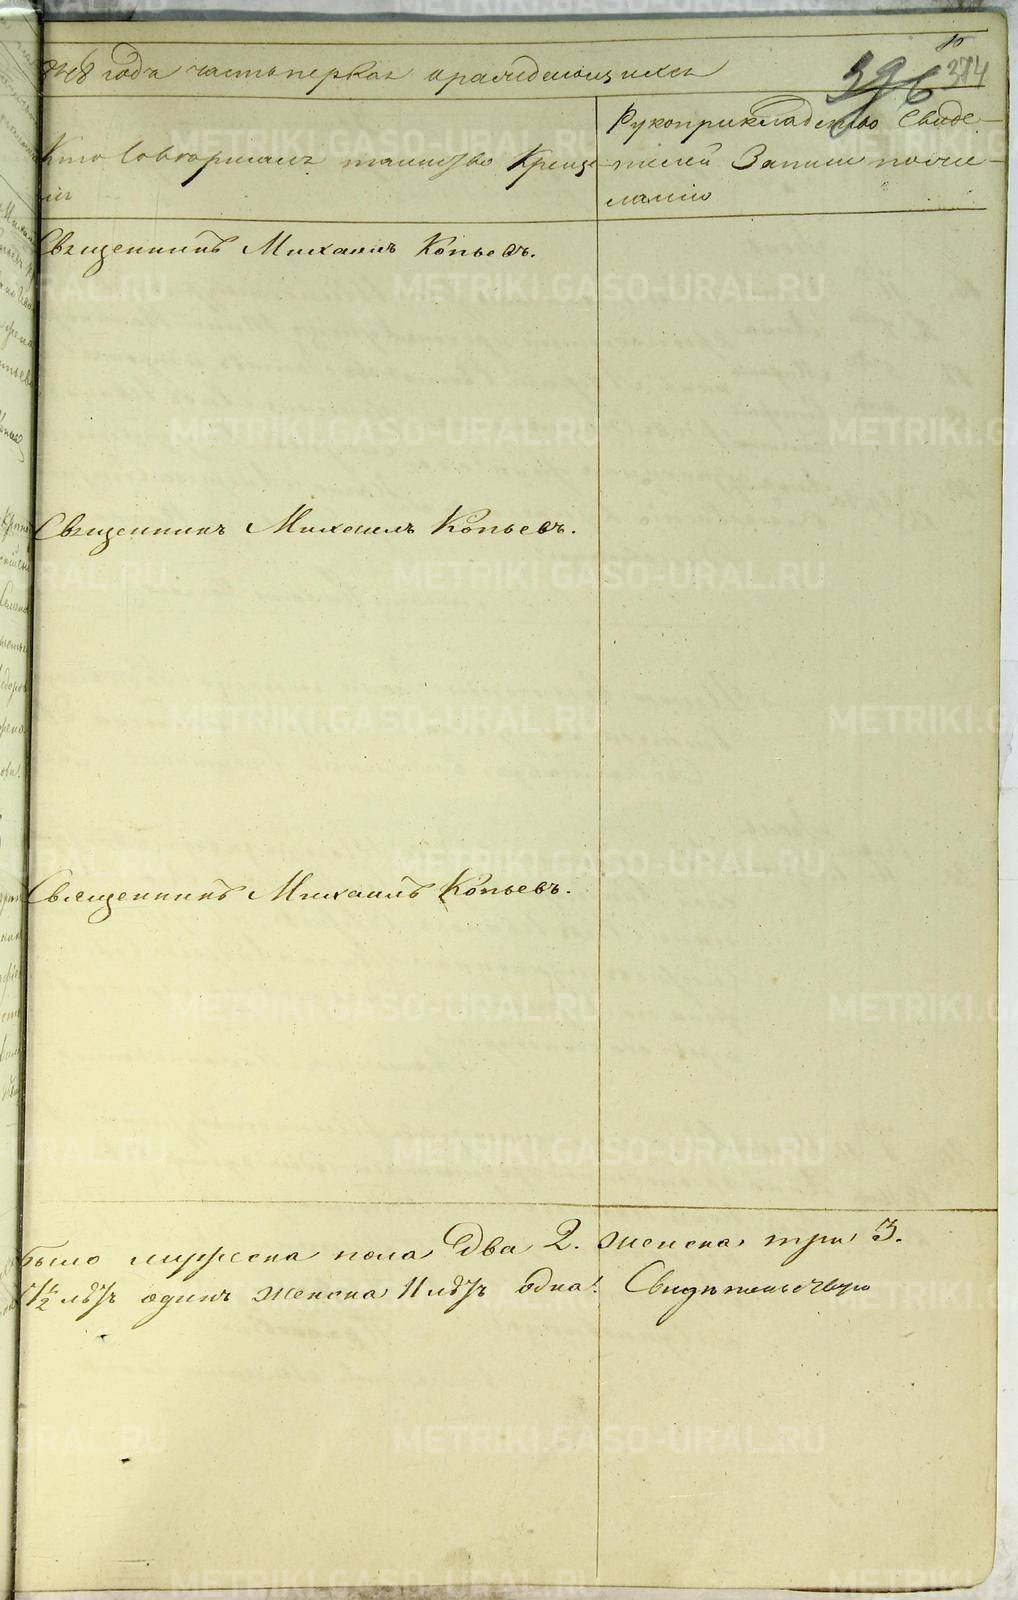 848 года часть первая о раждающихся
396 374
Кто Совершалъ таинство Крещенія
Рукоприкладство Свиде-
телей Записи по же-
ланію
Священникъ Михаилъ Копьевъ.
Священникъ Михаилъ Копьевъ.
Священникъ Михаилъ Копьевъ.
было мужеска пола два 2. женска три 3.
лѣтъ одинъ женска 11 лѣтъ одна. Свидѣтельствую
METRIKI.GASO-URAL.RU